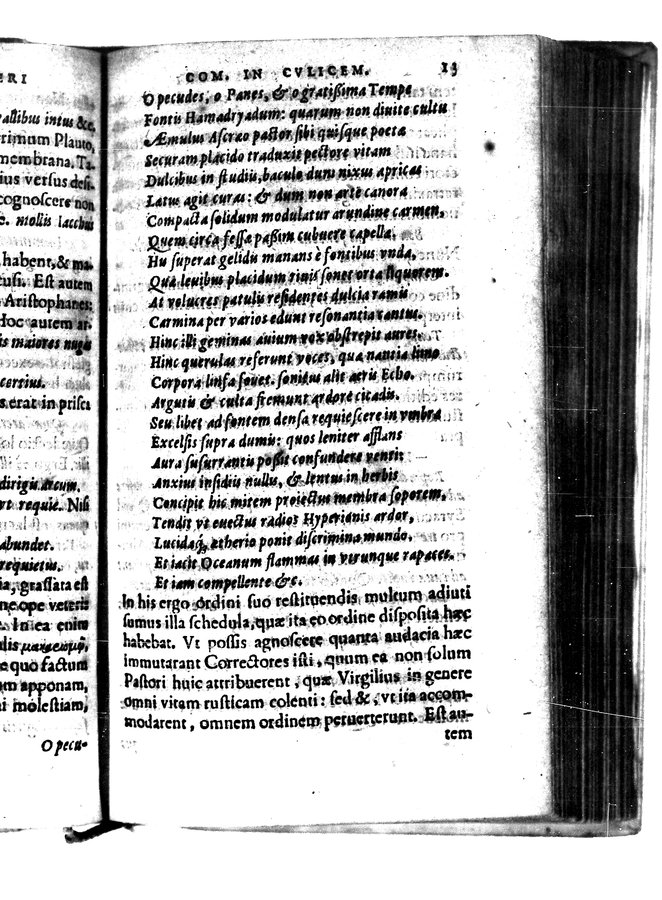 ERI
allibus intus &c.
rimum Plauto,
membrana. Ta-
ius versus desi-
cognoscere non
e. mollis Iacchus
habent, & ma-
tusi. Est autem
Aristophanes:
Hoc autem ar-
is maiores nugis
certius.
s erat in prisci
dirigis arcum.
rt requie. Nisi
abundet.
requietus.
ia, grassata est
ne ope veteris
. In ea enim
dis
a quo factum
um apponam,
ni molestiam,
O pecu-
COM. IN CVLICEM. 13
O pecudes, o Panes, & o gratißima Tempe
Fontis Hamadryadum: quarum non diuite cultu
Æmulus Ascræo pastor sibi quisque poeta
Securam placido traduxit pectore vitam
Dulcibus in studiis, baculo dum nixus apricas
Latus agit curas: & dum non arte canora
Compacta solidum modulatur arundine carmen.
Quem circa fessæ paßim cubuere capellæ,
His superat gelidis manans è fontibus vnda,
Quæ leuibus placidum riuis sonet orta liquorem.
At volucres patulis residentes dulcia ramis
Carmina per varios edunt resonantia cantus.
Hinc illi geminas auium vox obstrepit aures,
Hinc querulas referunt voces, quæ nantia limo
Corpora linfa fouet. sonitus alit aeris Echo.
Argutis & culta fremunt ardore cicadis.
Seu libet ad fontem densa requiescere in vmbra
Excelsis supra dumis: quos leniter afflans
Aura susurrantis poßit confundere ventis
Anxius insidiis nullis, & lentus in herbis
Concipit hic mitem proiectus membra soporem,
Tendit vt euectus radios Hyperionis ardor,
Lucidaq́; ætherio ponit discrimina mundo,
Et iacit Oceanum flammas in vtrunque rapaces.
Et iam compellente &c.
In his ergo ordini suo restituendis multum adiuti
sumus illa schedula, quæ ita eo ordine disposita hæc
habebat. Vt possis agnoscere quanta audacia hæc
immutarant Correctores isti, quum ea non solum
Pastori huic attribuerent, quæ Virgilius in genere
omni vitam rusticam colenti: sed &, vt ita accom-
modarent, omnem ordinem peruerterunt. Est au-
tem